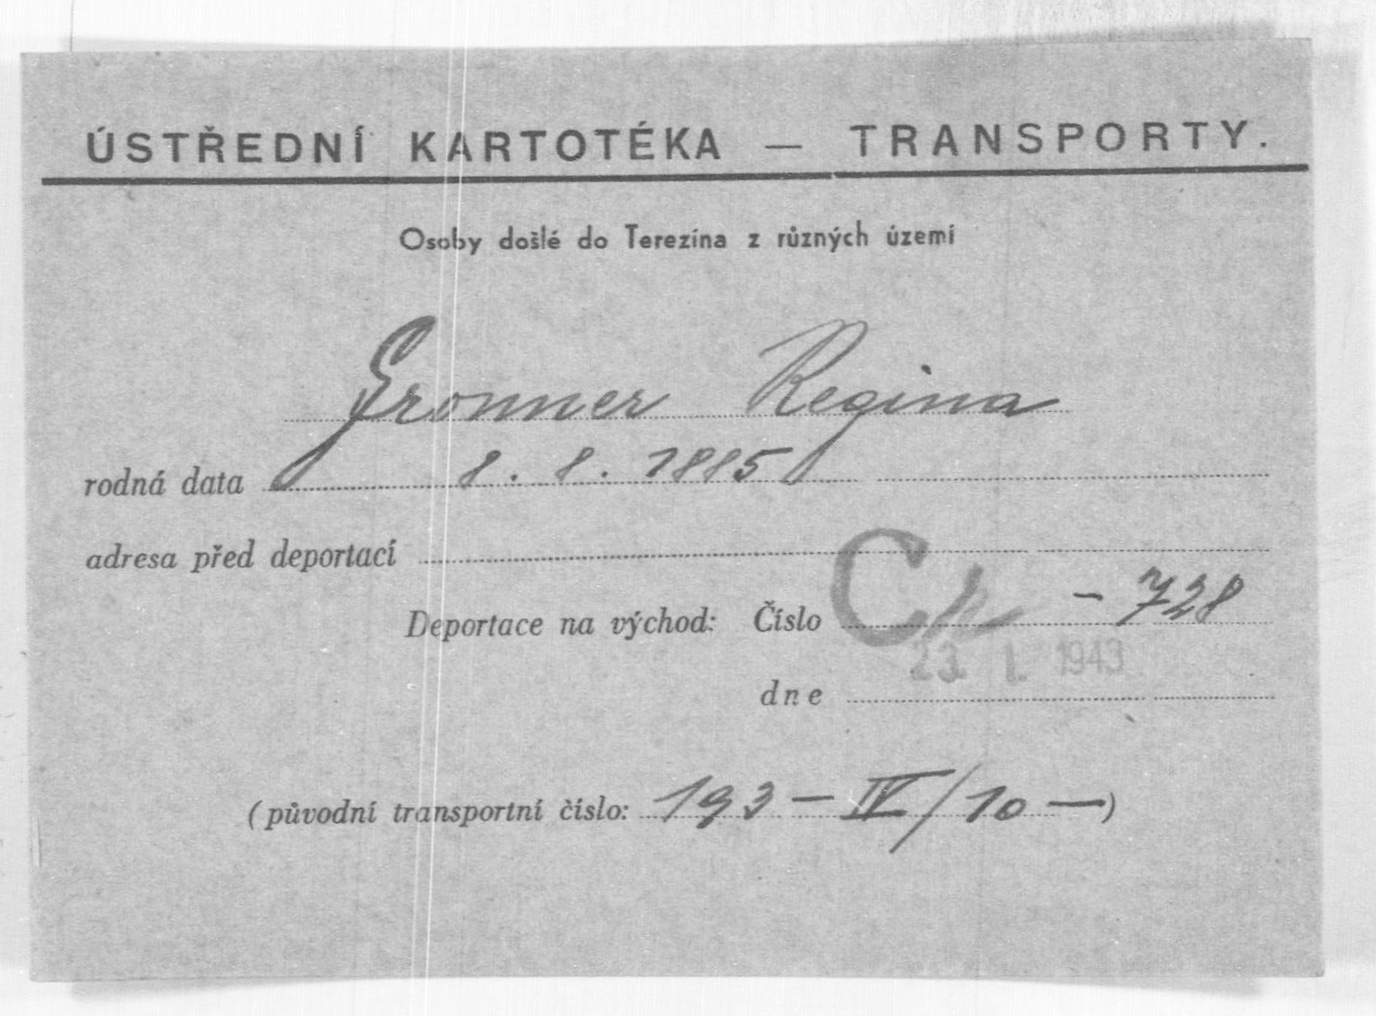 ÚSTŘEDNÍ KARTOTÉKA — TRANSPORTY.
Osoby došlé do Terezína z různých území
Gronner Regina
rodná data 8. 8. 1885
adresa před deportací
Deportace na východ: Číslo Cr - 728
23. I. 1943
dne
(původní transportní číslo: 193 - IV/10 —)